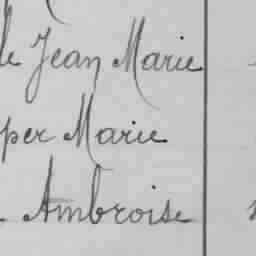 le Jean Marie
per Marie
Ambroise